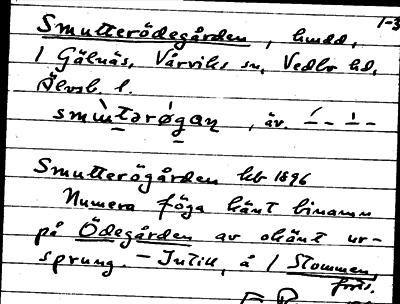 1-3
Smutterödegården, hmdd,
1 Gälnäs, Vårviks sn, Vedbo hd,
Älvsb. l.
smùtərø̀gan, äv.
Smutterögården hb 1896
Numera föga känt binamn
på Ödegården av okänt ur-
sprung. - Intill, å / Stommen,
forts.